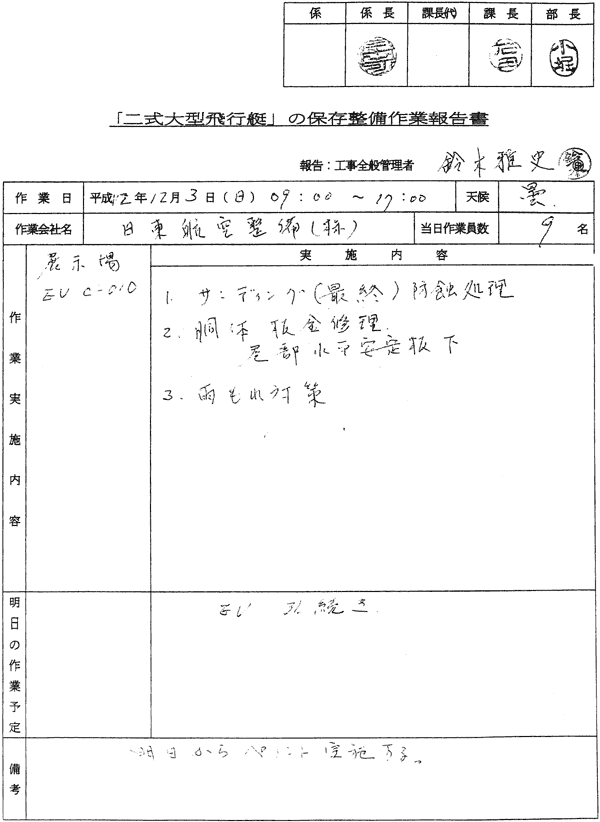 係 係長 課長(代) 課長 部長
小堀
「二式大型飛行艇」の保存整備作業報告書
報告：工事全般管理者 鈴木雅史
作業日 平成12年12月3日(日) 09:00 ～17:00 天候 曇
作業会社名 日東航空整備(株) 当日作業員数 9名
作業実施内容
展示場
実施内容
1. サンディング(最終)防蝕処理
2. 胴体 板金修理
尾部水平安定板下
3. 雨もれ対策
明日の作業予定
引続き
備考
明日からペイント実施する。